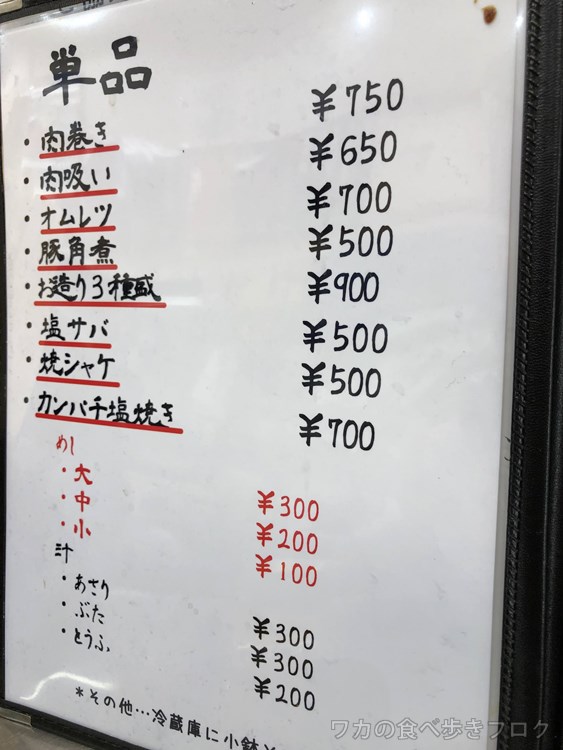 単品
・肉巻き ¥750
・肉吸い ¥650
・オムレツ ¥700
・豚角煮 ¥500
・お造り3種盛 ¥900
・塩サバ ¥500
・焼シャケ ¥500
・カンパチ塩焼き ¥700
めし
・大 ¥300
・中 ¥200
・小 ¥100
汁
・あさり ¥300
・ぶた ¥300
・とうふ ¥200
*その他…冷蔵庫に小鉢
ワカの食べ歩きブログ